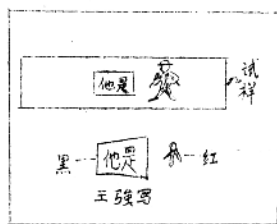 他是
试样
黑 他是 红
王強写